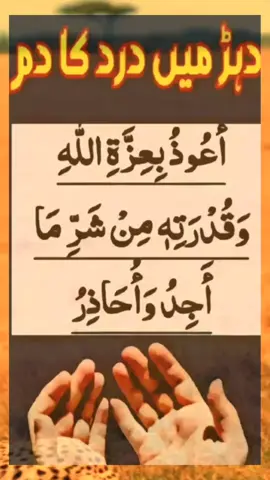 دہڑ میں درد کا دم
أَعُوذُ بِعِزَّةِ اللّٰهِ
وَقُدْرَتِهٖ مِنْ شَرِّ مَا
أَجِدُ وَأُحَاذِرُ